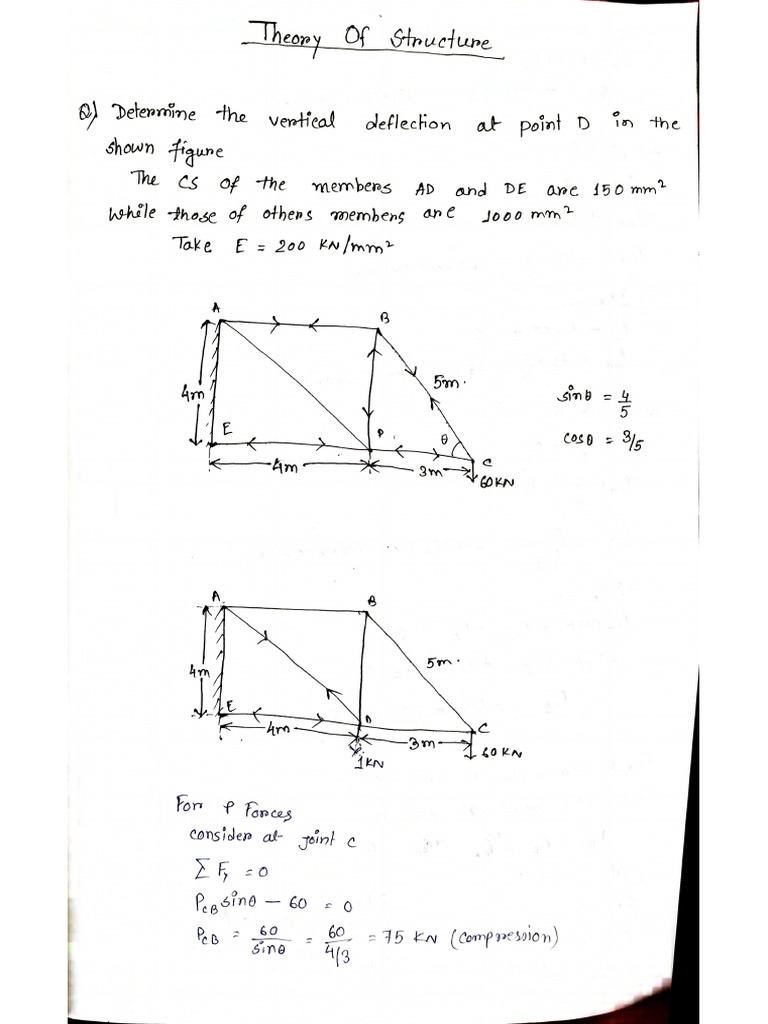 Theory Of Structure
Q) Determine the vertical deflection at point D in the
shown figure
The CS of the members AD and DE are 150 mm²
while those of others members are 1000 mm²
Take E = 200 KN/mm²
A
B
4m
5m.
sinθ = 4/5
E
D
θ
cosθ = 3/5
C
4m
3m
60KN
A
B
4m
5m.
E
D
C
4m
3m
60 KN
1KN
For P Forces
consider at joint c
Σ Fy = 0
PCB sinθ – 60 = 0
PCB = 60/sinθ = 60/4/3 = 75 KN (compression)